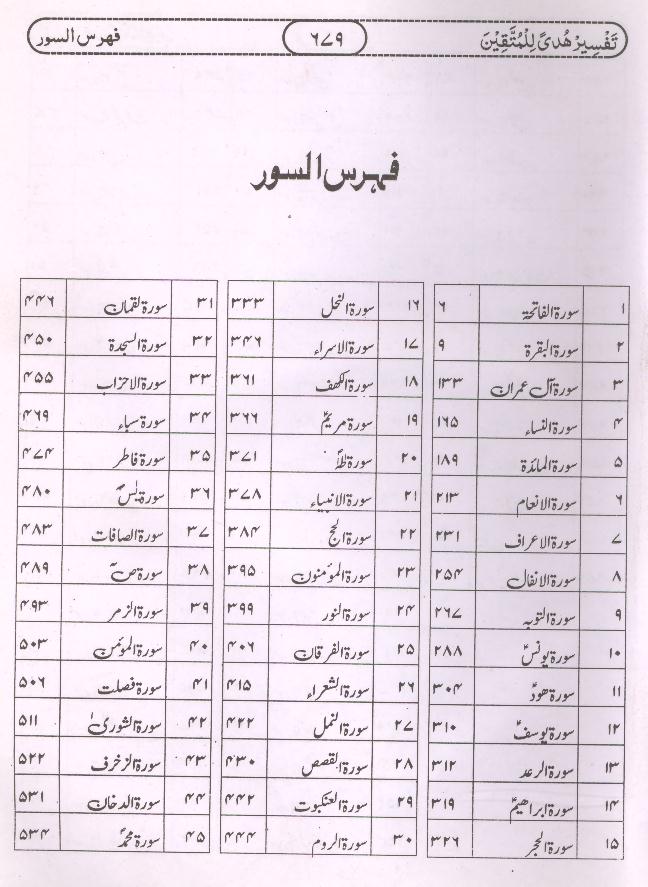 تَفْسِیْر ھُدیً لِّلْمُتَّقِیْنَ ۶۷۹ فہرس السور
فہرس السور
۱ سورۃ الفاتحۃ ۶
۲ سورۃ البقرۃ ۹
۳ سورۃ آل عمران ۱۳۳
۴ سورۃ النساء ۱۶۵
۵ سورۃ المائدۃ ۱۸۹
۶ سورۃ الانعام ۲۱۳
۷ سورۃ الاعراف ۲۳۱
۸ سورۃ الانفال ۲۵۴
۹ سورۃ التوبہ ۲۶۷
۱۰ سورۃ یونسؑ ۲۸۸
۱۱ سورۃ ھودؑ ۳۰۴
۱۲ سورۃ یوسفؑ ۳۱۰
۱۳ سورۃ الرعد ۳۱۲
۱۴ سورۃ ابراھیمؑ ۳۱۹
۱۵ سورۃ الحجر ۳۲۶
۱۶ سورۃ النحل ۳۳۳
۱۷ سورۃ الاسراء ۳۴۶
۱۸ سورۃ الکھف ۳۶۱
۱۹ سورۃ مریمؑ ۳۶۶
۲۰ سورۃ طٰہٰ ۳۷۱
۲۱ سورۃ الانبیاء ۳۷۸
۲۲ سورۃ الحج ۳۸۴
۲۳ سورۃ المؤمنون ۳۹۵
۲۴ سورۃ النور ۳۹۹
۲۵ سورۃ الفرقان ۴۰۶
۲۶ سورۃ الشعراء ۴۱۵
۲۷ سورۃ النمل ۴۲۲
۲۸ سورۃ القصص ۴۳۰
۲۹ سورۃ العنکبوت ۴۴۲
۳۰ سورۃ الروم ۴۴۴
۳۱ سورۃ لقمان ۴۴۶
۳۲ سورۃ السجدۃ ۴۵۰
۳۳ سورۃ الاحزاب ۴۵۵
۳۴ سورۃ سباء ۴۶۹
۳۵ سورۃ فاطر ۴۷۴
۳۶ سورۃ یٰسٓ ۴۸۰
۳۷ سورۃ الصافات ۴۸۳
۳۸ سورۃ صٓ ۴۸۹
۳۹ سورۃ الزمر ۴۹۳
۴۰ سورۃ المؤمن ۵۰۳
۴۱ سورۃ فصلت ۵۰۶
۴۲ سورۃ الشوریٰ ۵۱۱
۴۳ سورۃ الزخرف ۵۲۲
۴۴ سورۃ الدخان ۵۳۱
۴۵ سورۃ محمدؐ ۵۳۴